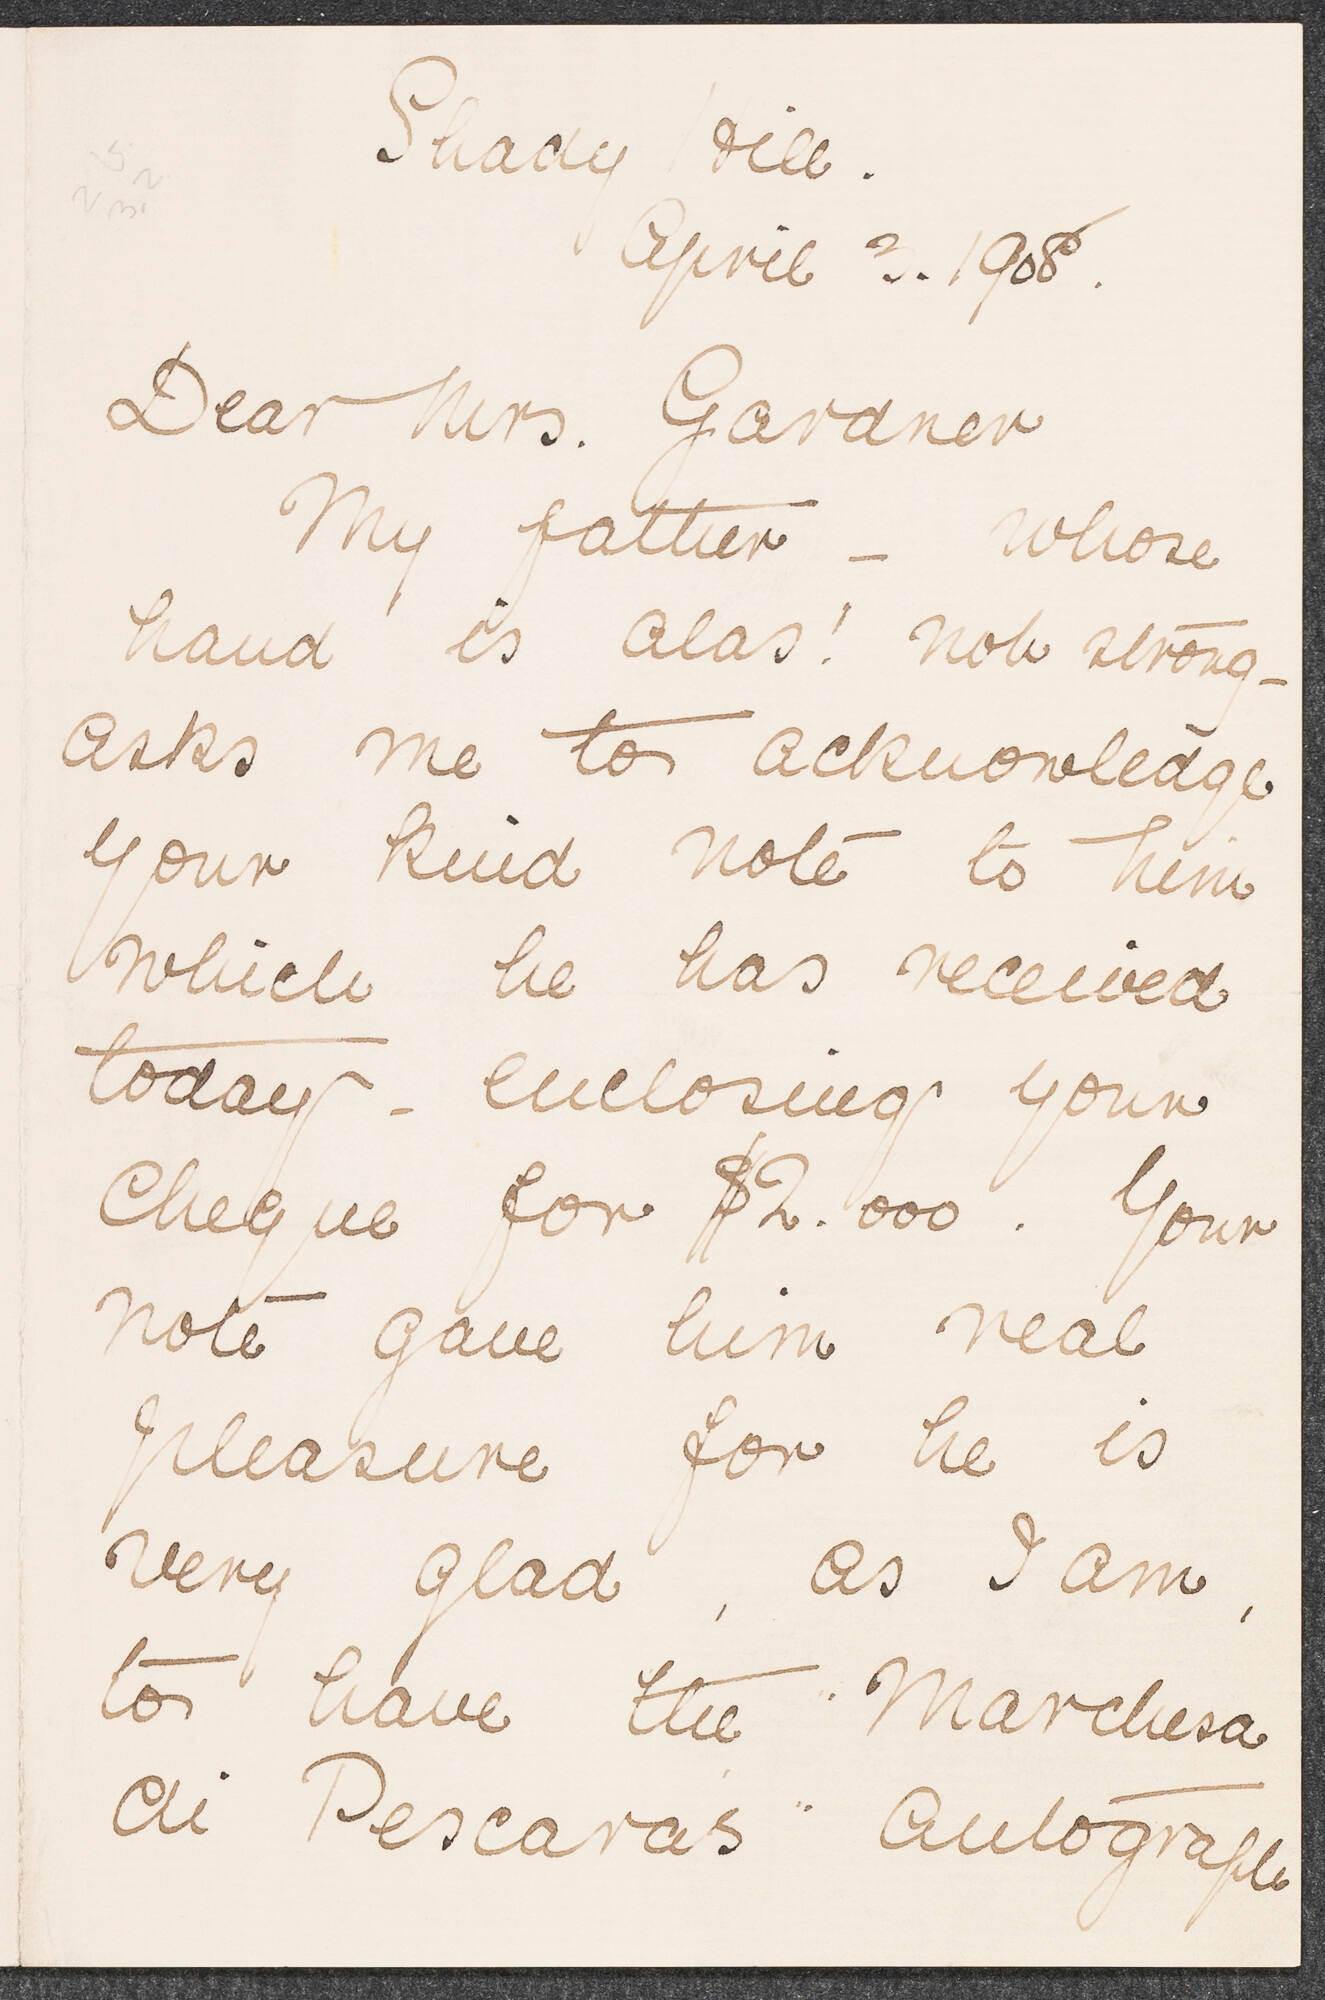 Shady Hill.
April 3. 1908.
Dear Mrs. Gardner
My father – whose
hand is alas! not strong –
asks me to acknowledge
your kind note to him
which he has received
today – enclosing your
cheque for $2.000. Your
note gave him real
pleasure for he is
very glad, as I am,
to have the "Marchesa
di Pescara's" autograph